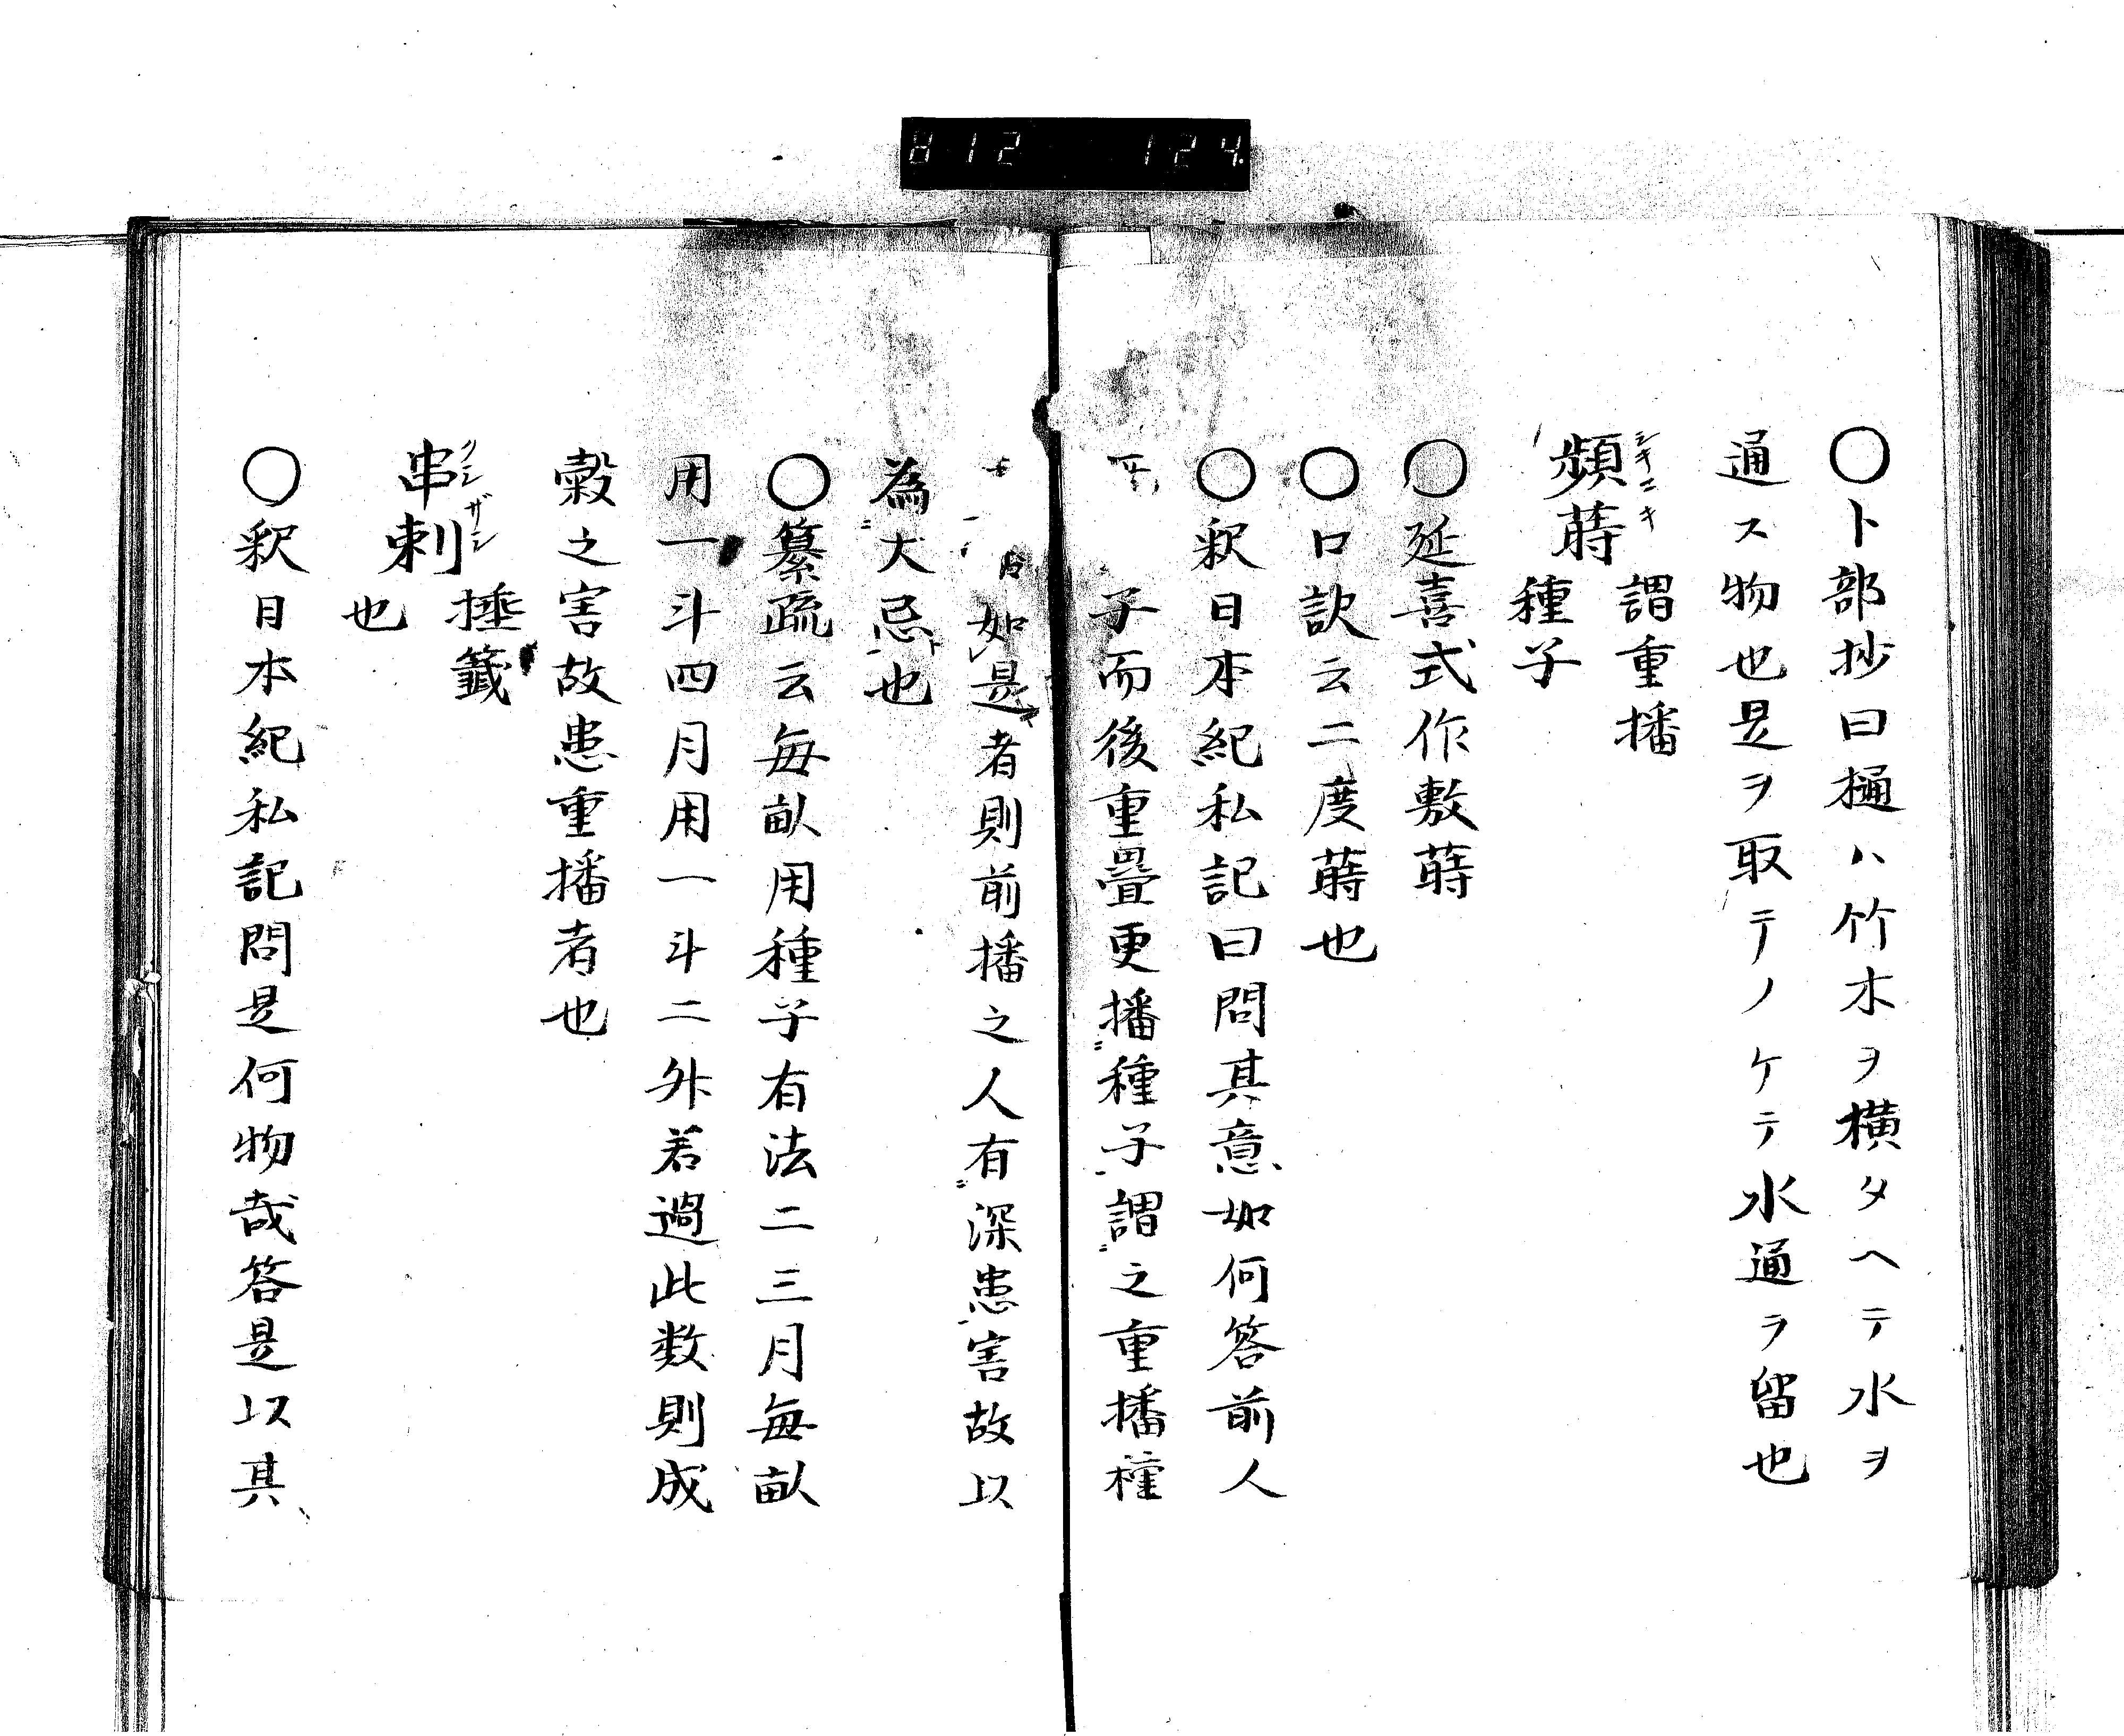 812 124
〇卜部抄曰樋ハ竹木ヲ横タヘテ水ヲ
通ス物也是ヲ取テノケテ水通ラ留也
頻蒔 シキマキ 謂重播
種子
〇延喜式作敷蒔
〇口訣云二度蒔也
〇釈日本紀私記曰問其意如何答前人
子而後重畳更播種子謂之重播種
如是者則前播之人有深患害故以
為大忌也
〇纂疏云毎畝用種子有法二三月毎畝
用一斗四月用一斗二升若過此数則成
穀之害故患重播者也
串刺 クシザシ 捶籤
也
〇釈日本紀私記問是何物哉答是以其